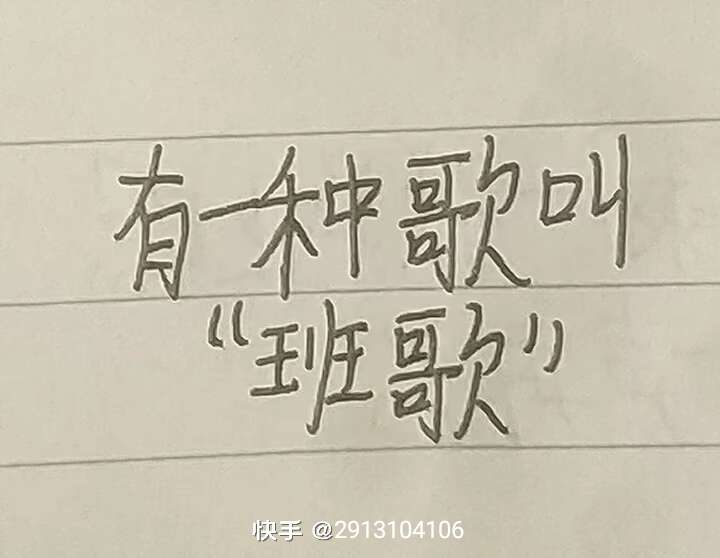 有一种歌叫
“班歌”
快手 @2913104106